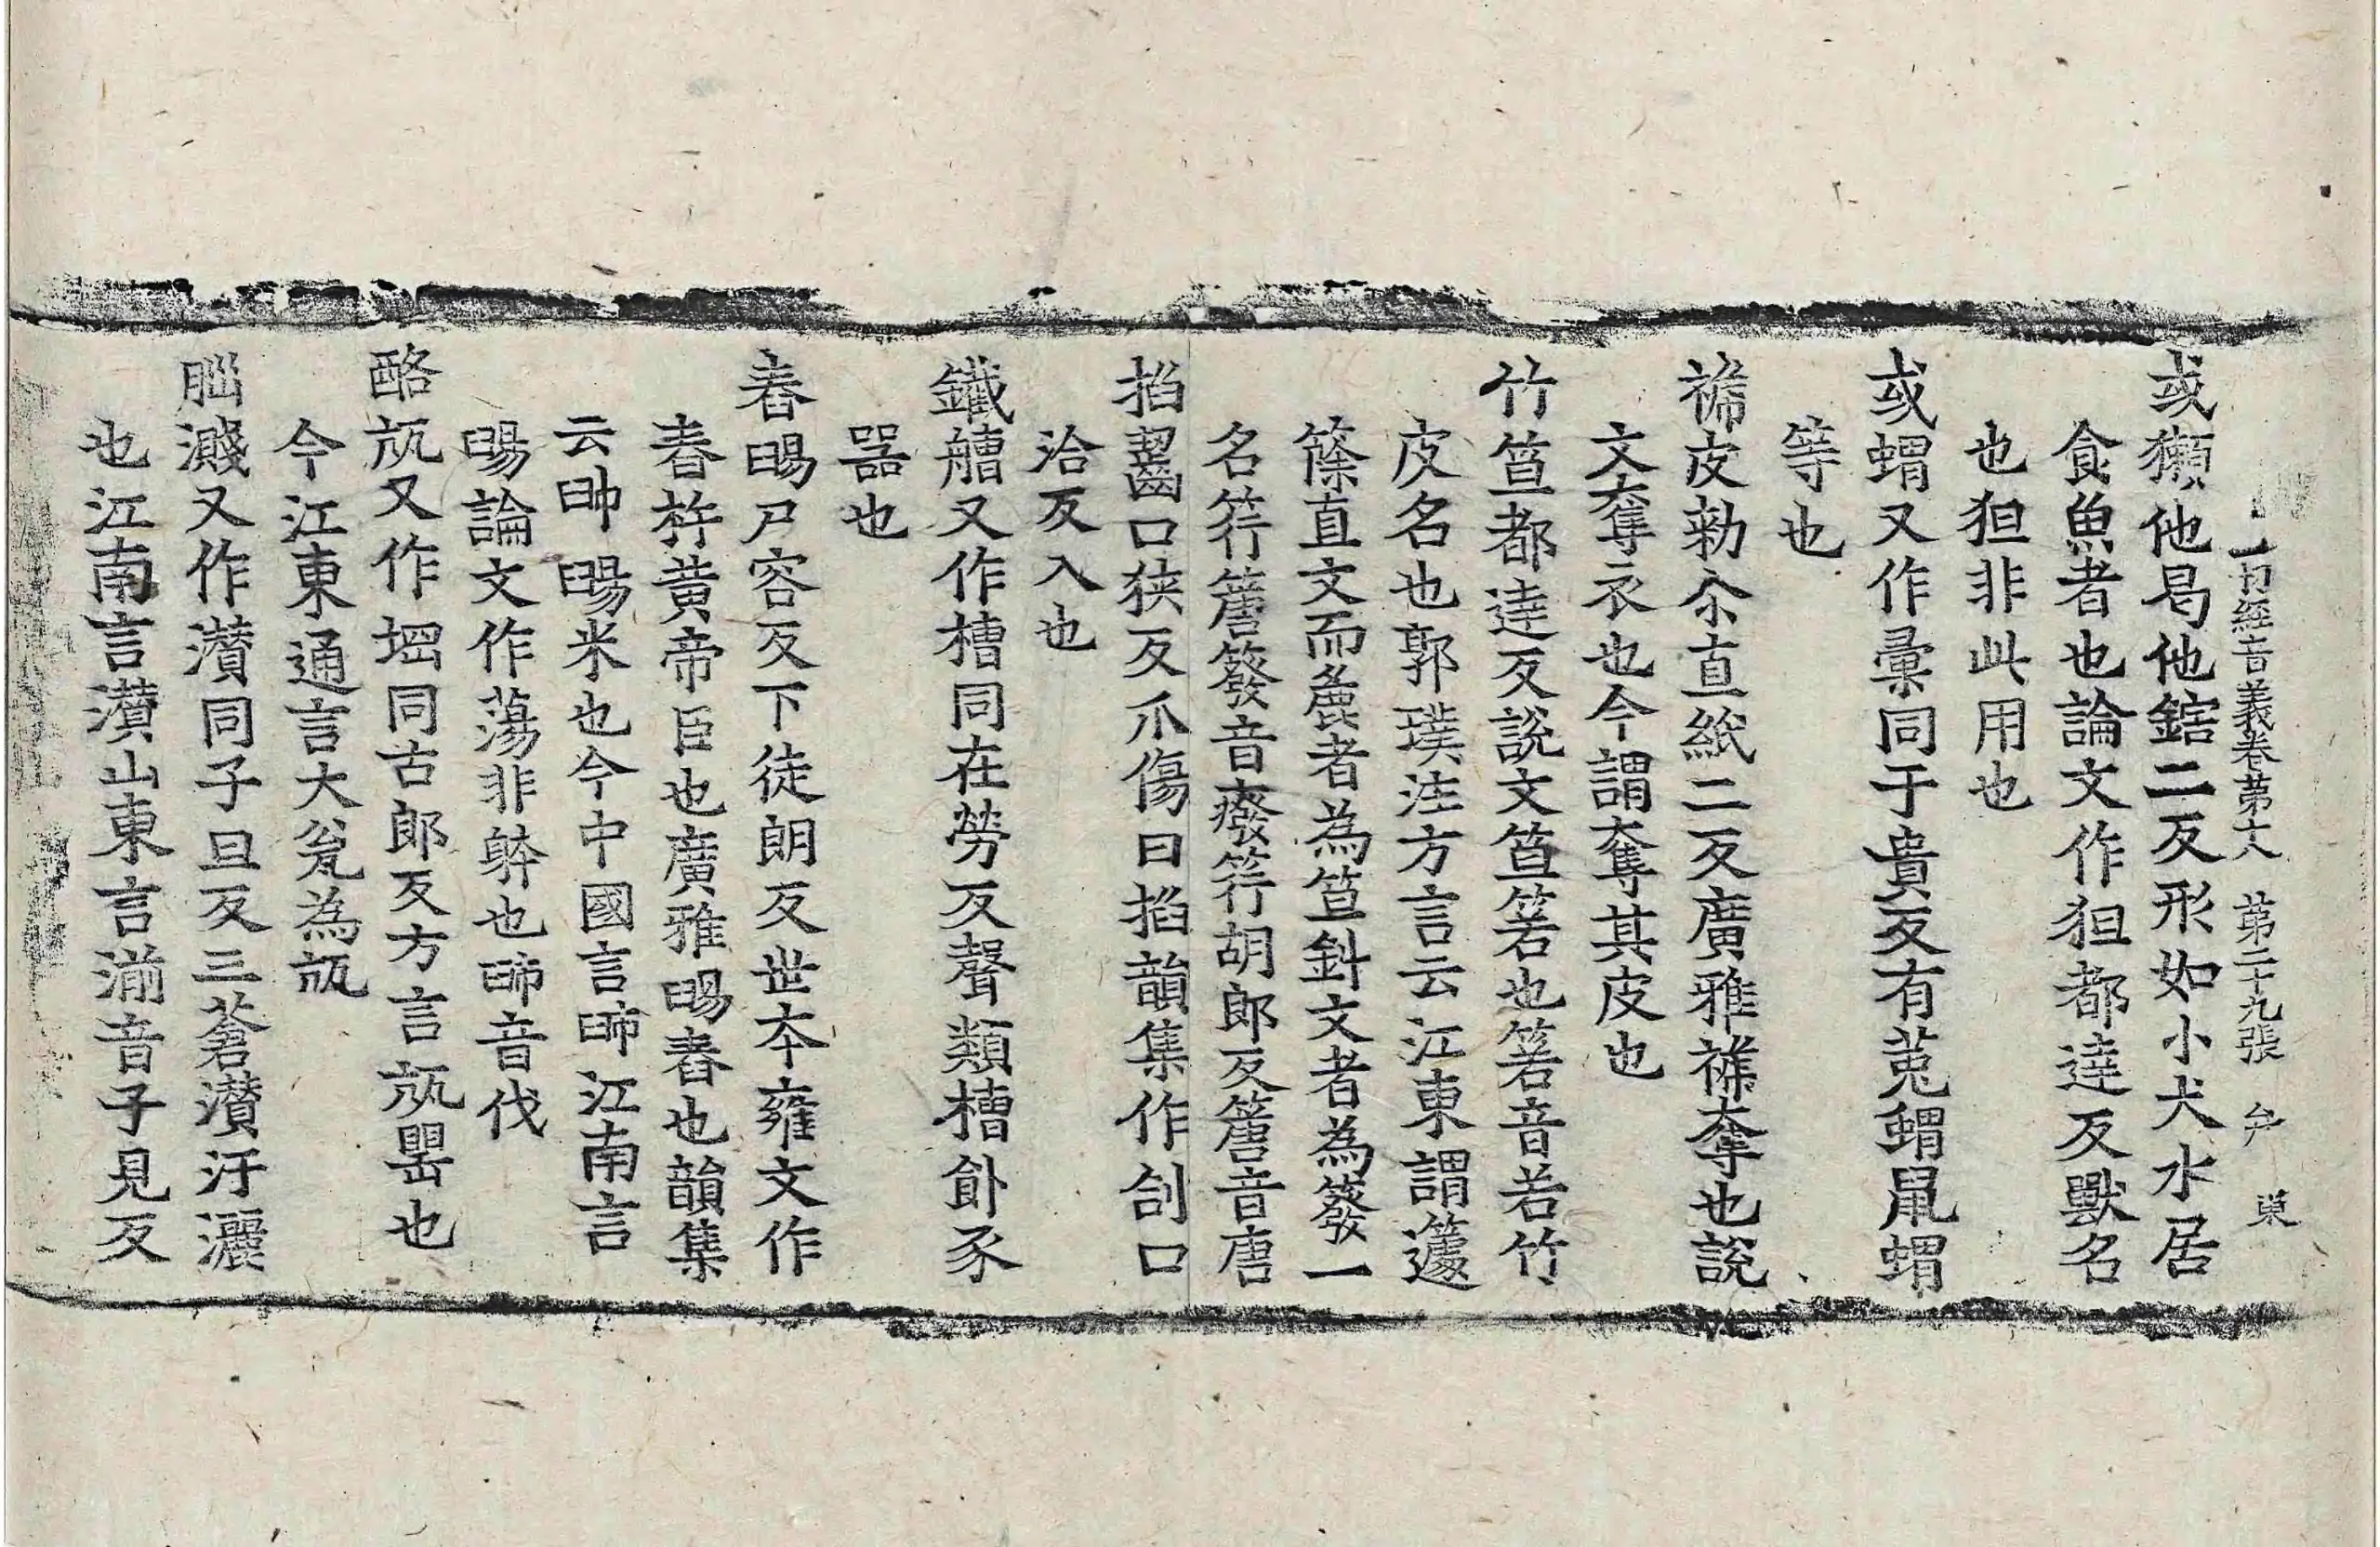 一切經音義卷第十八 第二十九張 𠂢 東
或獺他曷他鎋二反形如小犬水居
食魚者也論文作狚都達反獸名
也狚非此用也
或蝟又作彙同于貴反有菟蝟鼠蝟
等也
褫皮勑尒直紙二反廣雅褫奪也說
文奪衣也今謂奪其皮也
竹笪都達反說文笪箬也箬音若竹
皮名也郭璞注方言云江東謂籧
篨直文而麁者為笪斜文者為簝一
名筕簹簝音癈筕胡郎反簹音唐
掐齧口狹反爪傷曰掐韻集作刉口
洽反入也
鐵艚又作槽同在勞反聲類槽飤豕
器也
舂暘尸容反下徒朗反世夲雍文作
舂杵黄帝臣也廣雅暘舂也韻集
云𣆶暘米也今中國言𣆶江南言
暘論文作蕩非躰也𣆶音伐
酪瓨又作堈同古郎反方言瓨甖也
今江東通言大瓮為瓨
𦛁濺又作灒同子旦反三蒼灒汙灑
也江南言灒山東言湔音子見反